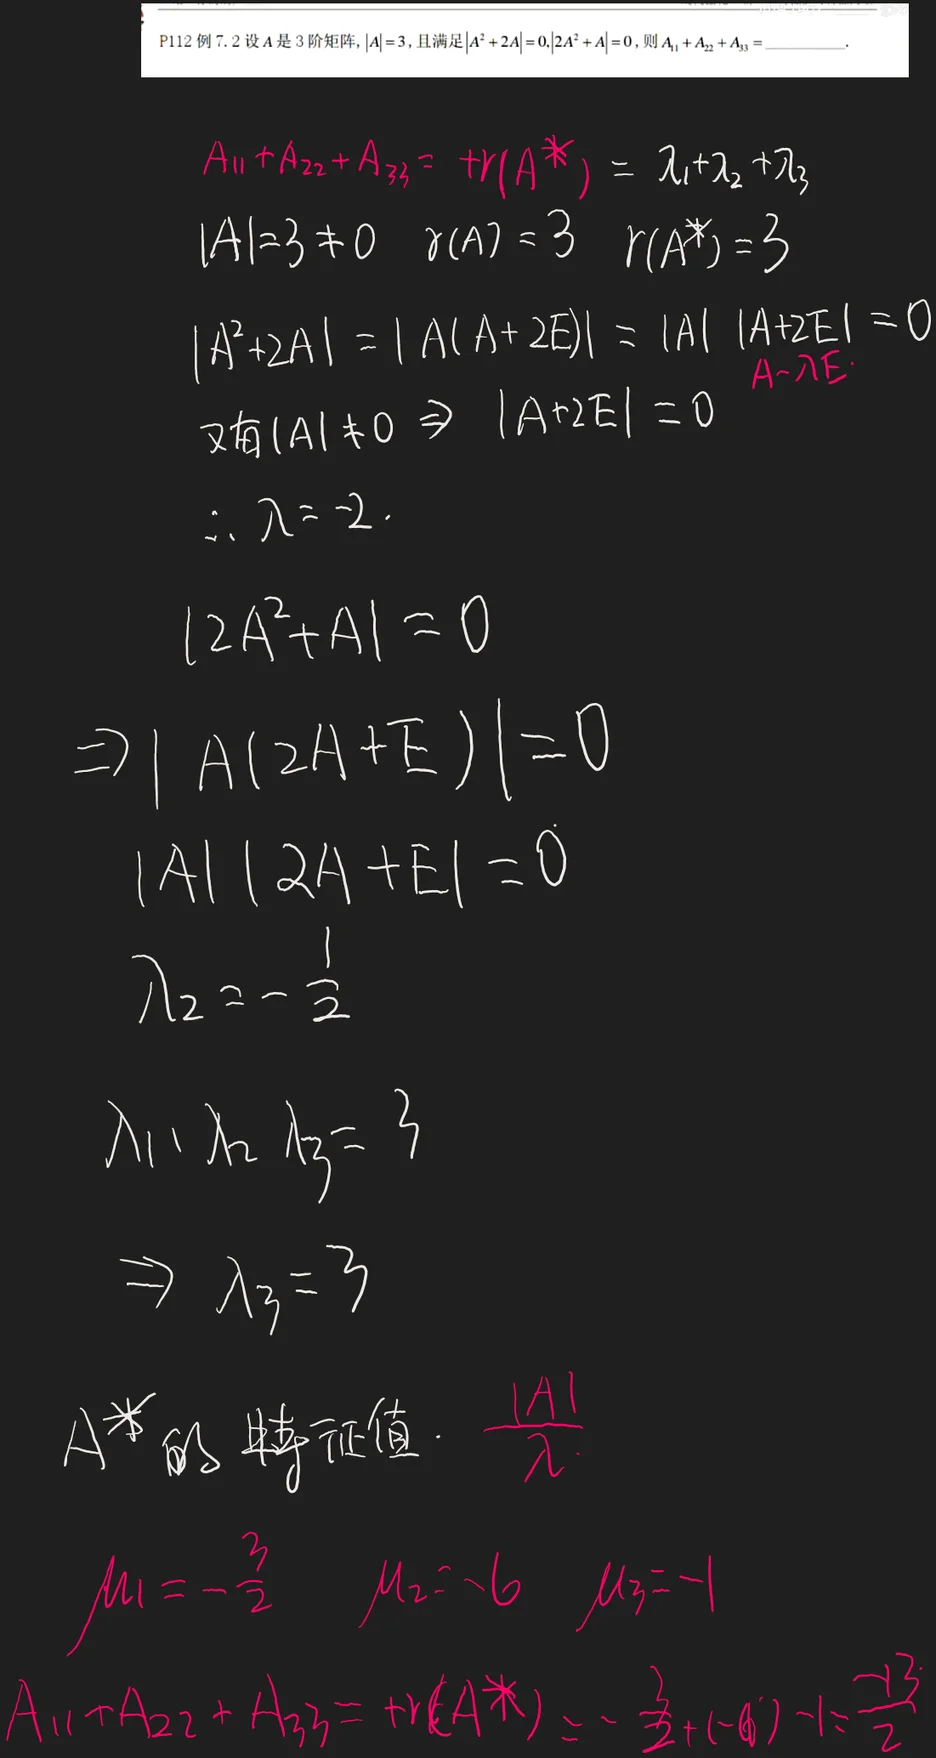 P112 例 7.2 设 A 是 3 阶矩阵, |A|=3, 且满足 |A²+2A|=0, |2A²+A|=0, 则 A₁₁+A₂₂+A₃₃=________.
A₁₁+A₂₂+A₃₃= tr(A*) = λ₁+λ₂+λ₃
|A|=3≠0 r(A)=3 r(A*)=3
|A²+2A| = |A(A+2E)| = |A| |A+2E| = 0
A-λE.
又有|A|≠0 ⇒ |A+2E|=0
∴ λ=-2.
|2A²+A|=0
⇒|A(2A+E)|=0
|A||2A+E|=0
λ₂=-1/2
λ₁·λ₂ λ₃=3
⇒ λ₃=3
A*的特征值. |A|/λ.
μ₁=-3/2 μ₂=-6 μ₃=-1
A₁₁+A₂₂+A₃₃=tr(A*)=-3/2+(-6)-1=-13/2